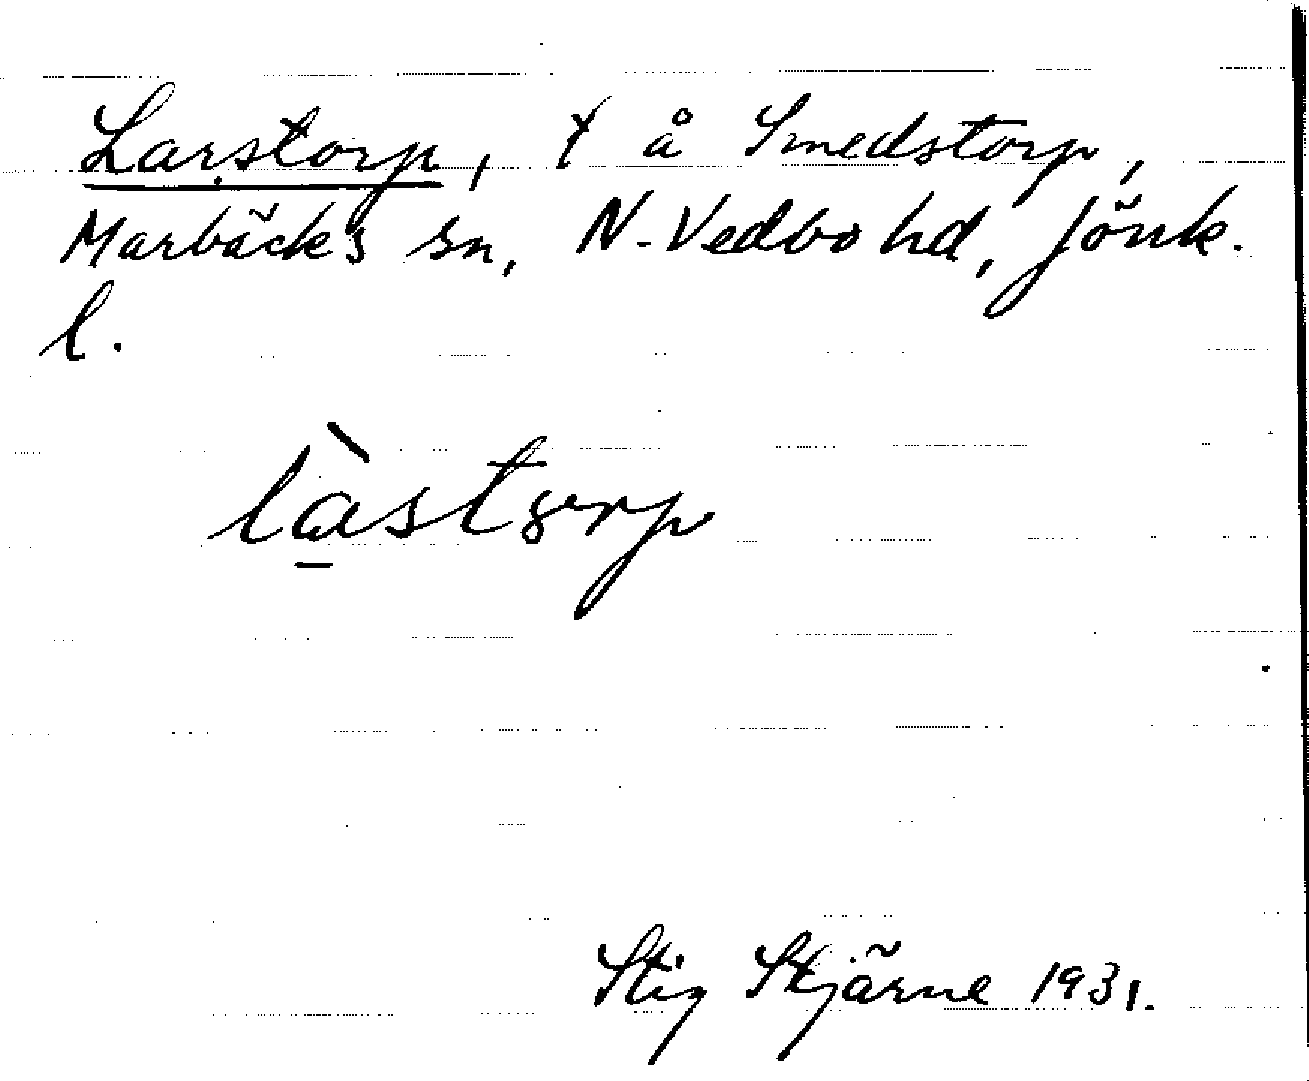 Larstorp, t å Smedstorp,
Marbäcks sn, N. Vedbo hd, Jönk.
l.
làstorp
Stig Stjärne 1931.